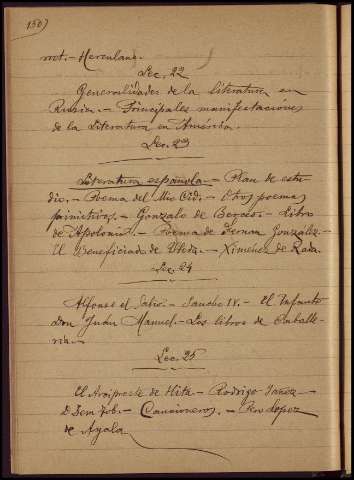 150)
rret. - Herculano.
Lec. 22
Generalidades de la literatura en
Rusia. - Principales manifestaciones
de la Literatura en América.
Lec. 23
Literatura española - Plan de estu
dio. - Poema del Mio Cid. - Otros poemas
primitivos. - Gonzalo de Berceo. - Libro
de Apolonio. - Poema de Fernan Gonzalez. -
El Beneficiado de Ubeda. - Ximenez de Rada.
Lec. 24
Alfonso el Sabio. - Sancho IV. - El Infante
Don Juan Manuel. - Los libros de Caballe-
ria. -
Lec. 25
El Arcipreste de Hita. - Rodrigo Yañez -
D. Sem Yob. - Cancioneros. - Pero Lopez
de Ayala